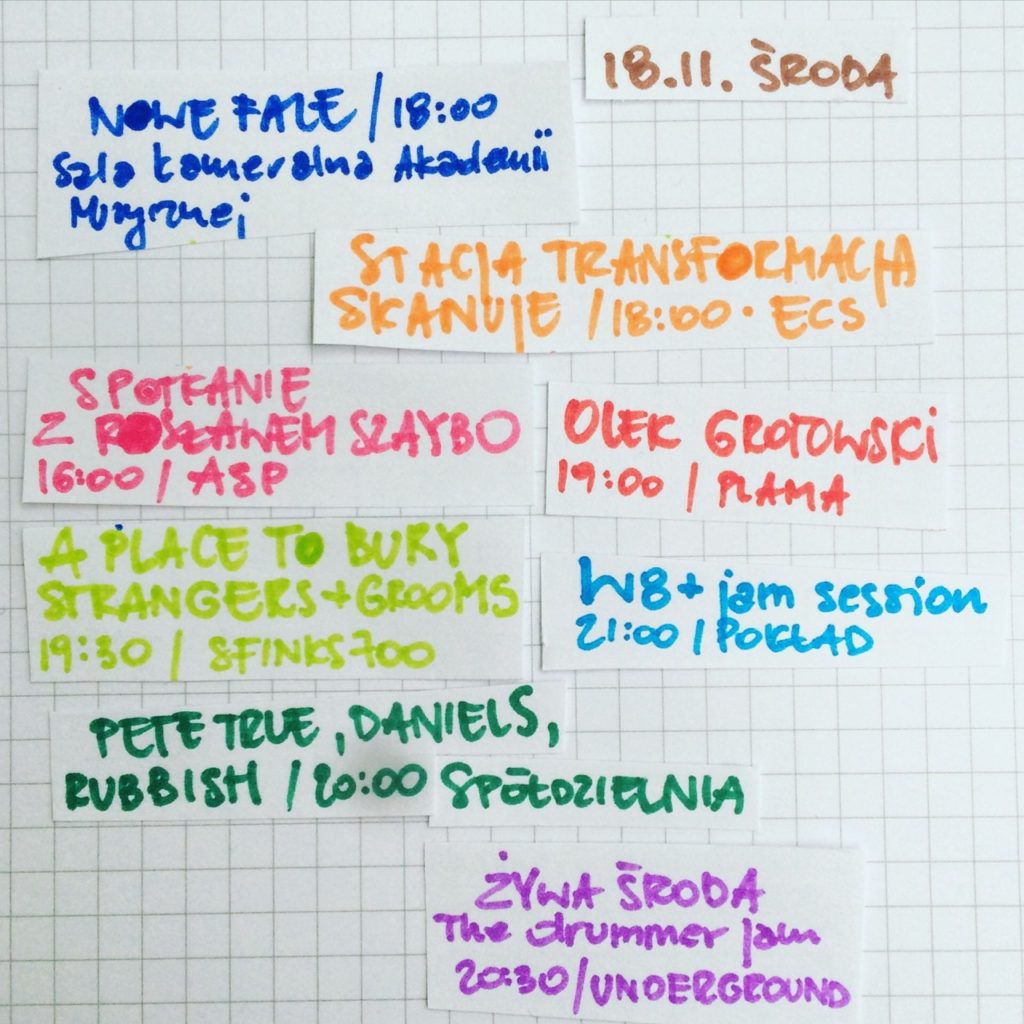 18.11. ŚRODA
NOWE FALE / 18:00
Sala kameralna Akademii
Muzycznej
STACJA TRANSFORMACJA
SKANUJE / 18:00 · ECS
SPOTKANIE
Z ROSŁAWEM SZAYBO
16:00 / ASP
OLEK GROTOWSKI
19:00 / PLAMA
A PLACE TO BURY
STRANGERS + GROOMS
19:30 / SFINKS700
W8 + jam session
21:00 / POKŁAD
PETE TRUE, DANIELS,
RUBBISH / 20:00 SPÓŁDZIELNIA
ŻYWA ŚRODA
The drummer jam
20:30 / UNDERGROUND